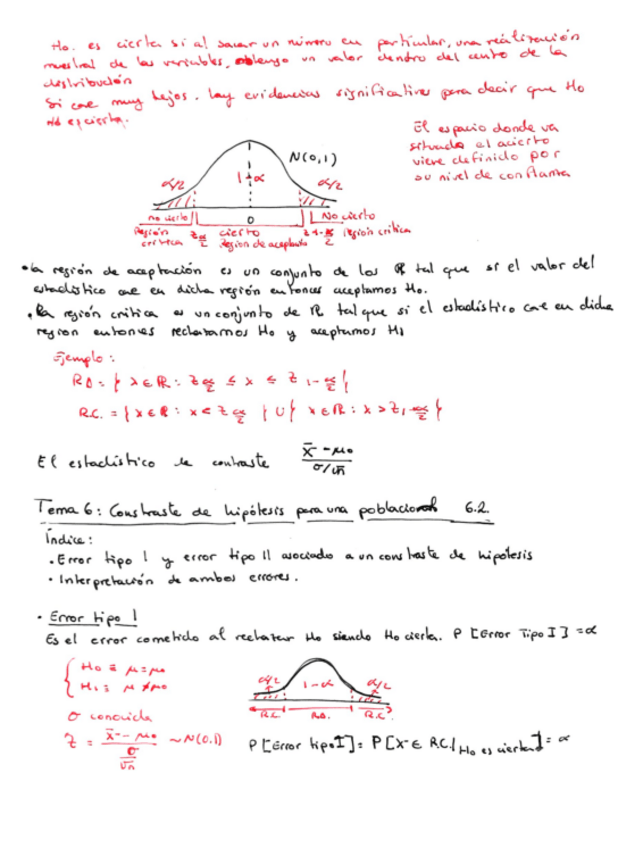 Ho. es cierta si al sacar un número en particular, una realización
muestral de las variables, obtengo un valor dentro del centro de la
distribución
Si cae muy lejos. hay evidencias significativas para decir que Ho
no es cierta.
El espacio donde va
situado el acierto
viene definido por
su nivel de confianza
N(0,1)
α/2 1-α α/2
no cierto cierto 0 No cierto
Región crítica Z α/2 Región de aceptación Z 1-α/2 región crítica
• La región de aceptación es un conjunto de los R tal que si el valor del
estadístico cae en dicha región entonces aceptamos Ho.
• La región crítica es un conjunto de R tal que si el estadístico cae en dicha
region entonces rechazamos Ho y aceptamos H1
Ejemplo:
R.A = { x ∈ R : Z α/2 ≤ x ≤ Z 1-α/2 }
R.C. = { x ∈ R : x < Z α/2 } U { x ∈ R : x > Z 1-α/2 }
El estadístico de contraste x̄ - μo / σ/√n
Tema 6: Constraste de hipótesis para una poblacion 6.2.
Índice:
• Error tipo I y error tipo II asociado a un constraste de hipotesis
• Interpretación de ambos errores.
• Error tipo I
Es el error cometido al rechazar Ho siendo Ho cierta. P [Error Tipo I] = α
{ Ho ≡ μ = μo
H1 ≡ μ ≠ μo
α/2 1-α α/2
R.C. R.A. R.C.
σ conocida
Z = x̄ - μo / σ/√n ~ N(0,1)
P [Error tipo I] = P [x ∈ R.C. / Ho es cierta] = α